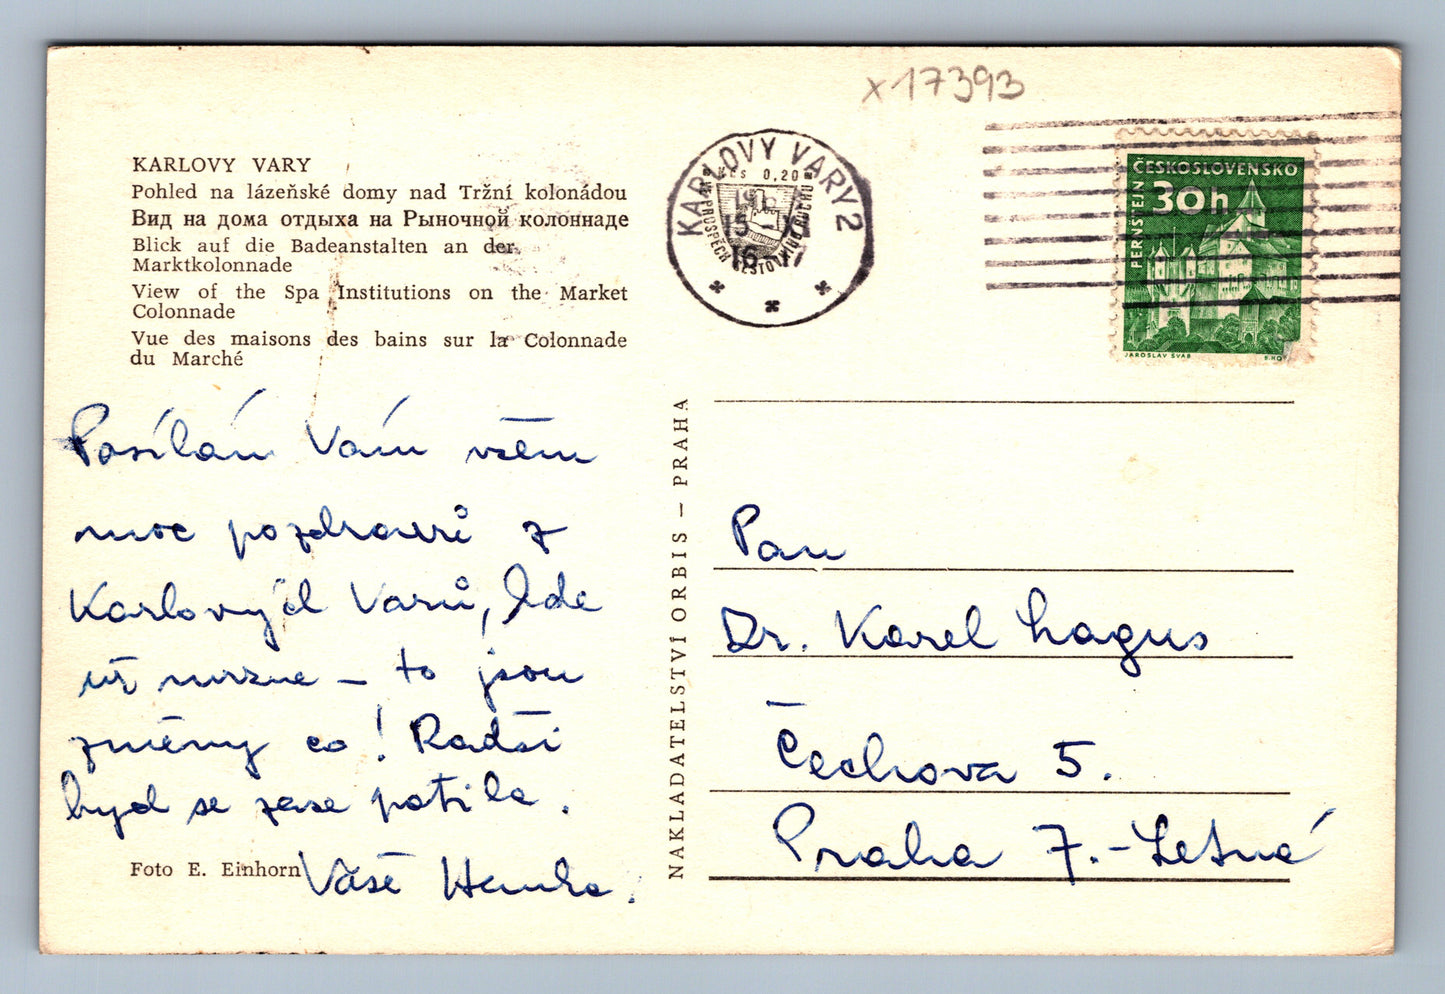 x17393
KARLOVY VARY
Pohled na lázeňské domy nad Tržní kolonádou
Вид на дома отдыха на Рыночной колоннаде
Blick auf die Badeanstalten an der
Marktkolonnade
View of the Spa Institutions on the Market
Colonnade
Vue des maisons des bains sur la Colonnade
du Marché
KARLOVY VARY 2
Kčs 0,20
VE PROSPĚCH CESTOVNÍHO RUCHU
15 XI
16-17
ČESKOSLOVENSKO
30h
PERNŠTEJN
JAROSLAV ŠVÁB
Posílám Vám všem
moc pozdravů z
Karlových Varů, kde
už mrzne – to jsou
změny co! Radši
bych se zase potila.
Vaše Hanka.
Foto E. Einhorn
NAKLADATELSTVÍ ORBIS – PRAHA
Pan
Dr. Karel Lagus
Čechova 5.
Praha 7.-Letná